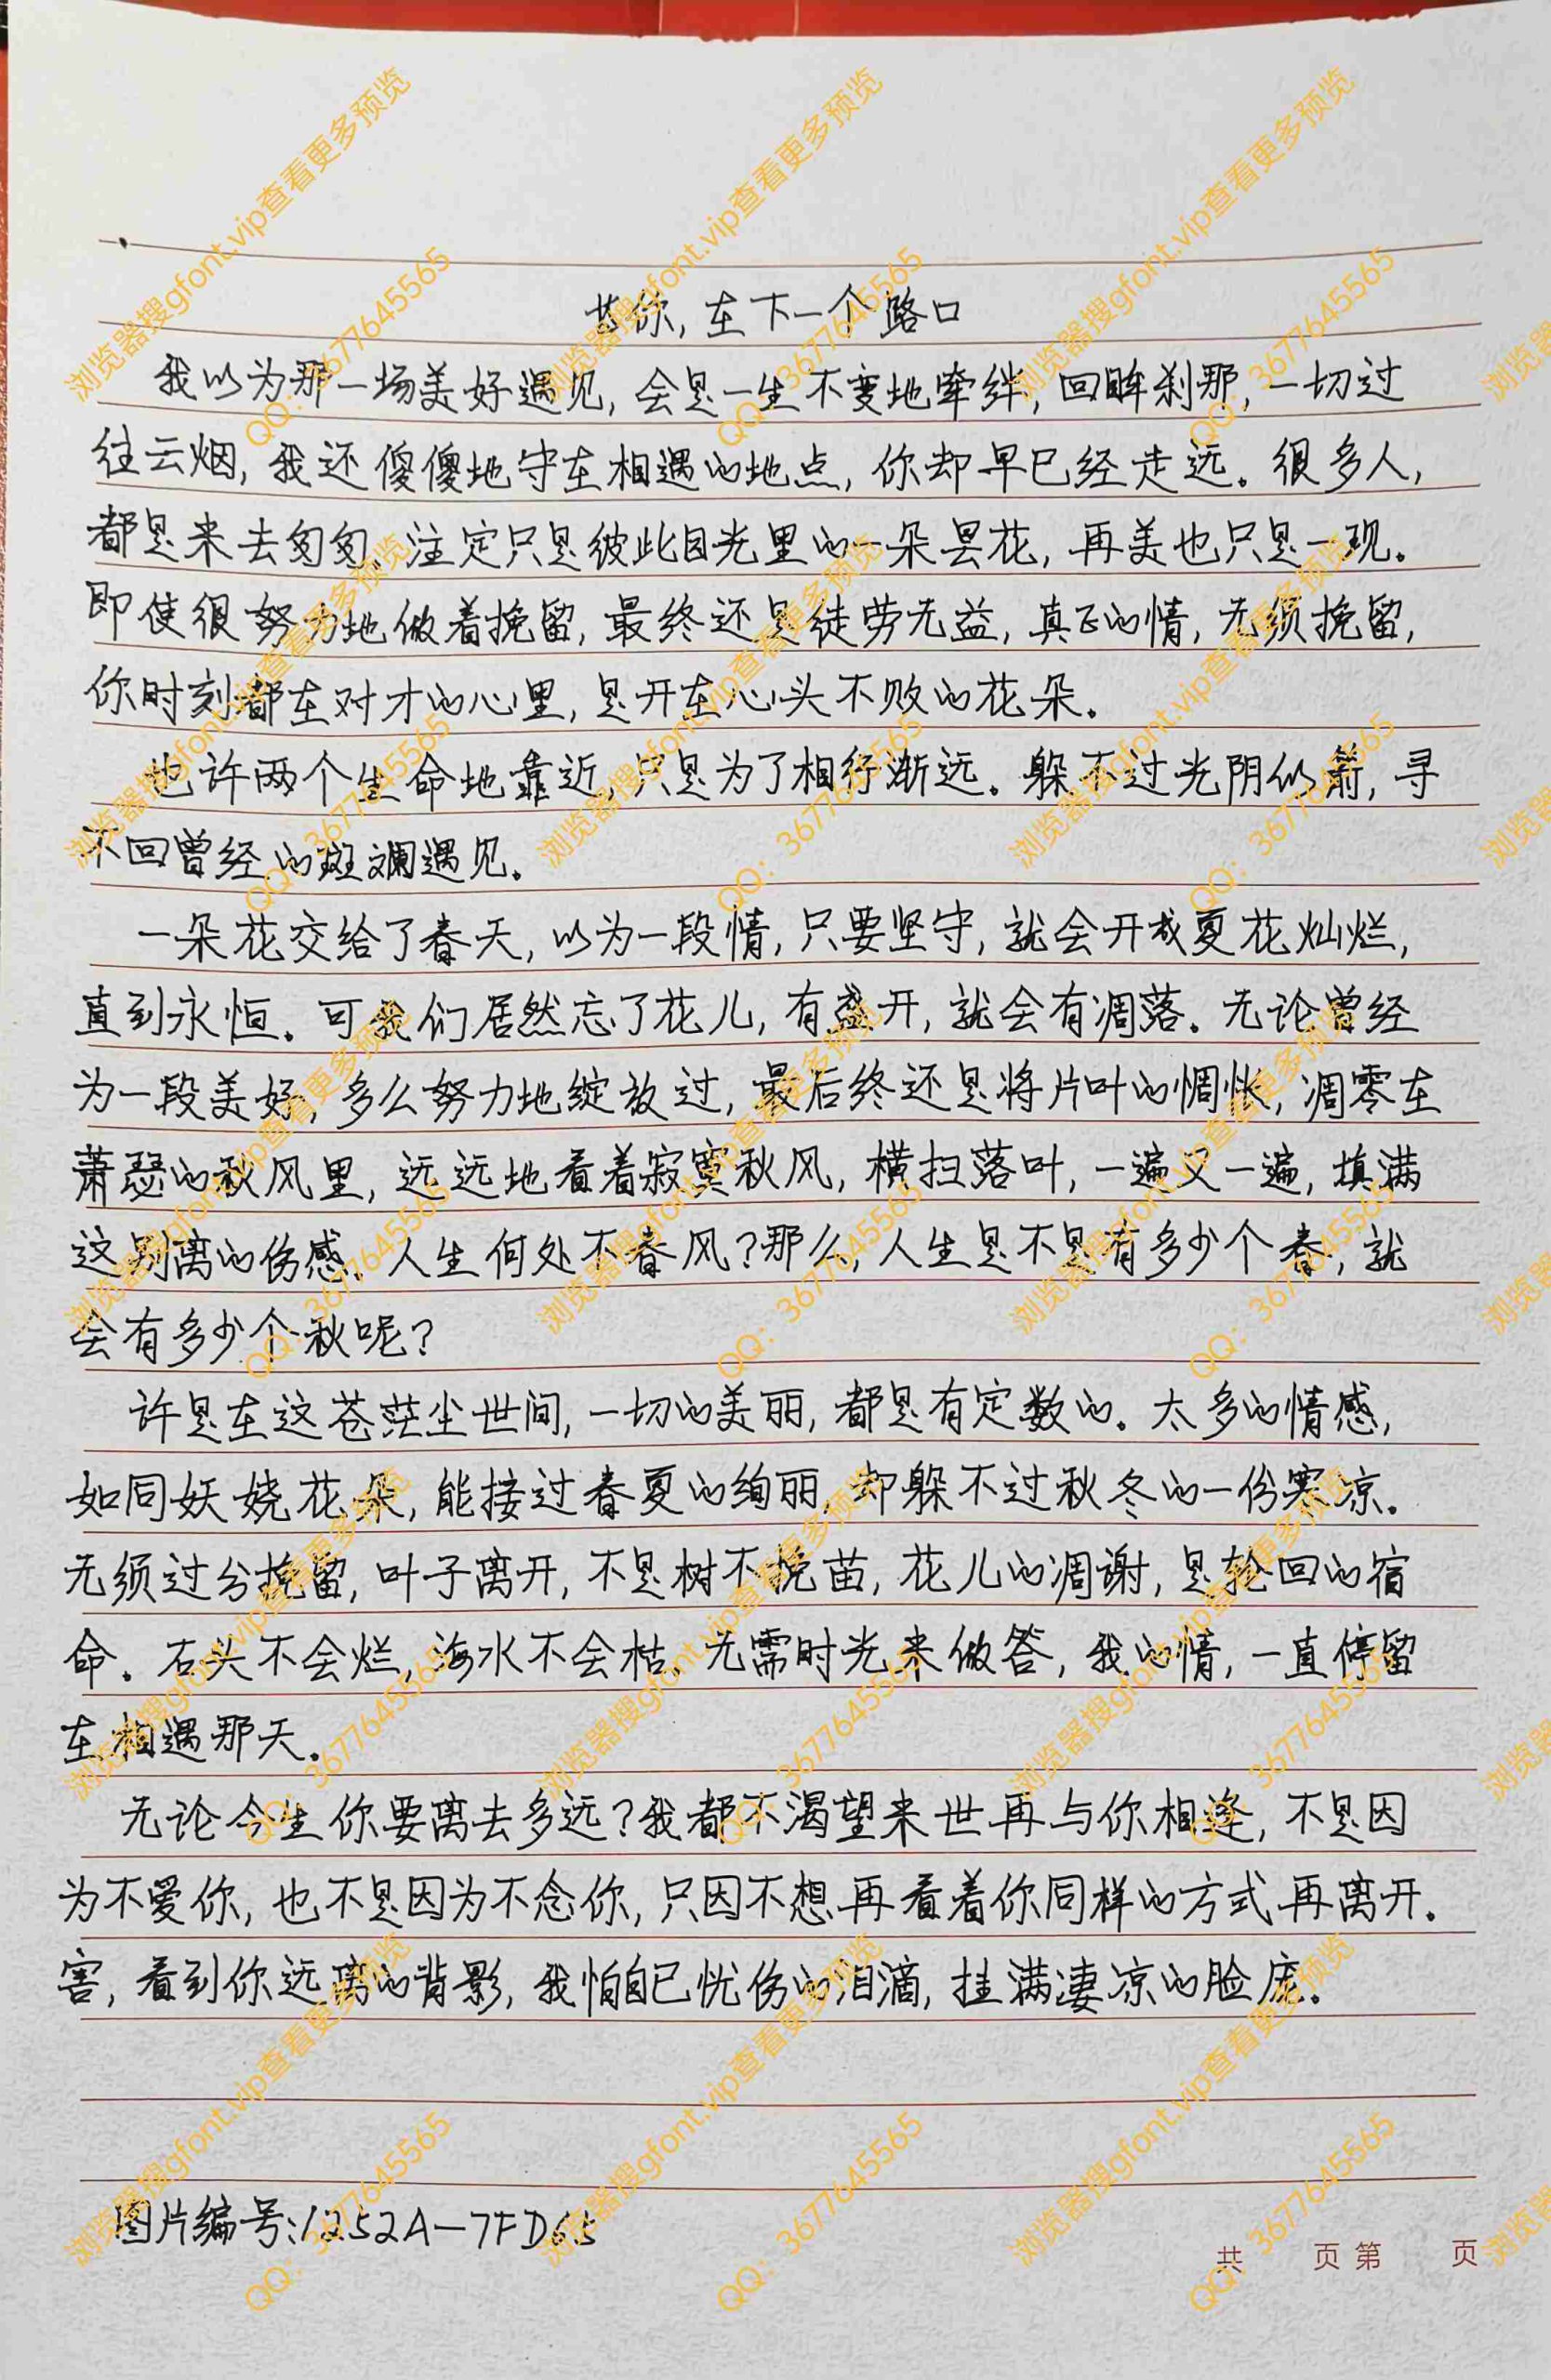 等你,在下一个路口
我以为那一场美好遇见,会是一生不变地牵绊,回眸刹那,一切过
往云烟,我还傻傻地守在相遇的地点,你却早已经走远。很多人,
都是来去匆匆,注定只是彼此目光里的一朵昙花,再美也只是一现。
即使很努力地做着挽留,最终还是徒劳无益,真正的情,无须挽留,
你时刻都在对才的心里,是开在心头不败的花朵。
也许两个生命地靠近,只是为了相行渐远。躲不过光阴似箭,寻
不回曾经的斑斓遇见。
一朵花交给了春天,以为一段情,只要坚守,就会开成夏花灿烂,
直到永恒。可我们居然忘了花儿,有盛开,就会有凋落。无论曾经
为一段美好,多么努力地绽放过,最后终还是将片叶的惆怅,凋零在
萧瑟的秋风里,远远地看着寂寞秋风,横扫落叶,一遍又一遍,填满
这别离的伤感。人生何处不春风?那么,人生是不是有多少个春,就
会有多少个秋呢?
许是在这苍茫尘世间,一切的美丽,都是有定数的。太多的情感,
如同妖娆花朵,能接过春夏的绚丽,却躲不过秋冬的一份寒凉。
无须过分挽留,叶子离开,不是树不挽苗,花儿的凋谢,是轮回的宿
命。石头不会烂,海水不会枯,无需时光来做答,我的情,一直停留
在相遇那天。
无论今生你要离去多远?我都不渴望来世再与你相逢,不是因
为不爱你,也不是因为不念你,只因不想再看着你同样的方式再离开。
害,看到你远离的背影,我怕自己忧伤的泪滴,挂满凄凉的脸庞。
图片编号:1252A-7FD65
共 页 第 页
浏览器搜gfont.vip查看更多预览
QQ: 3677645565